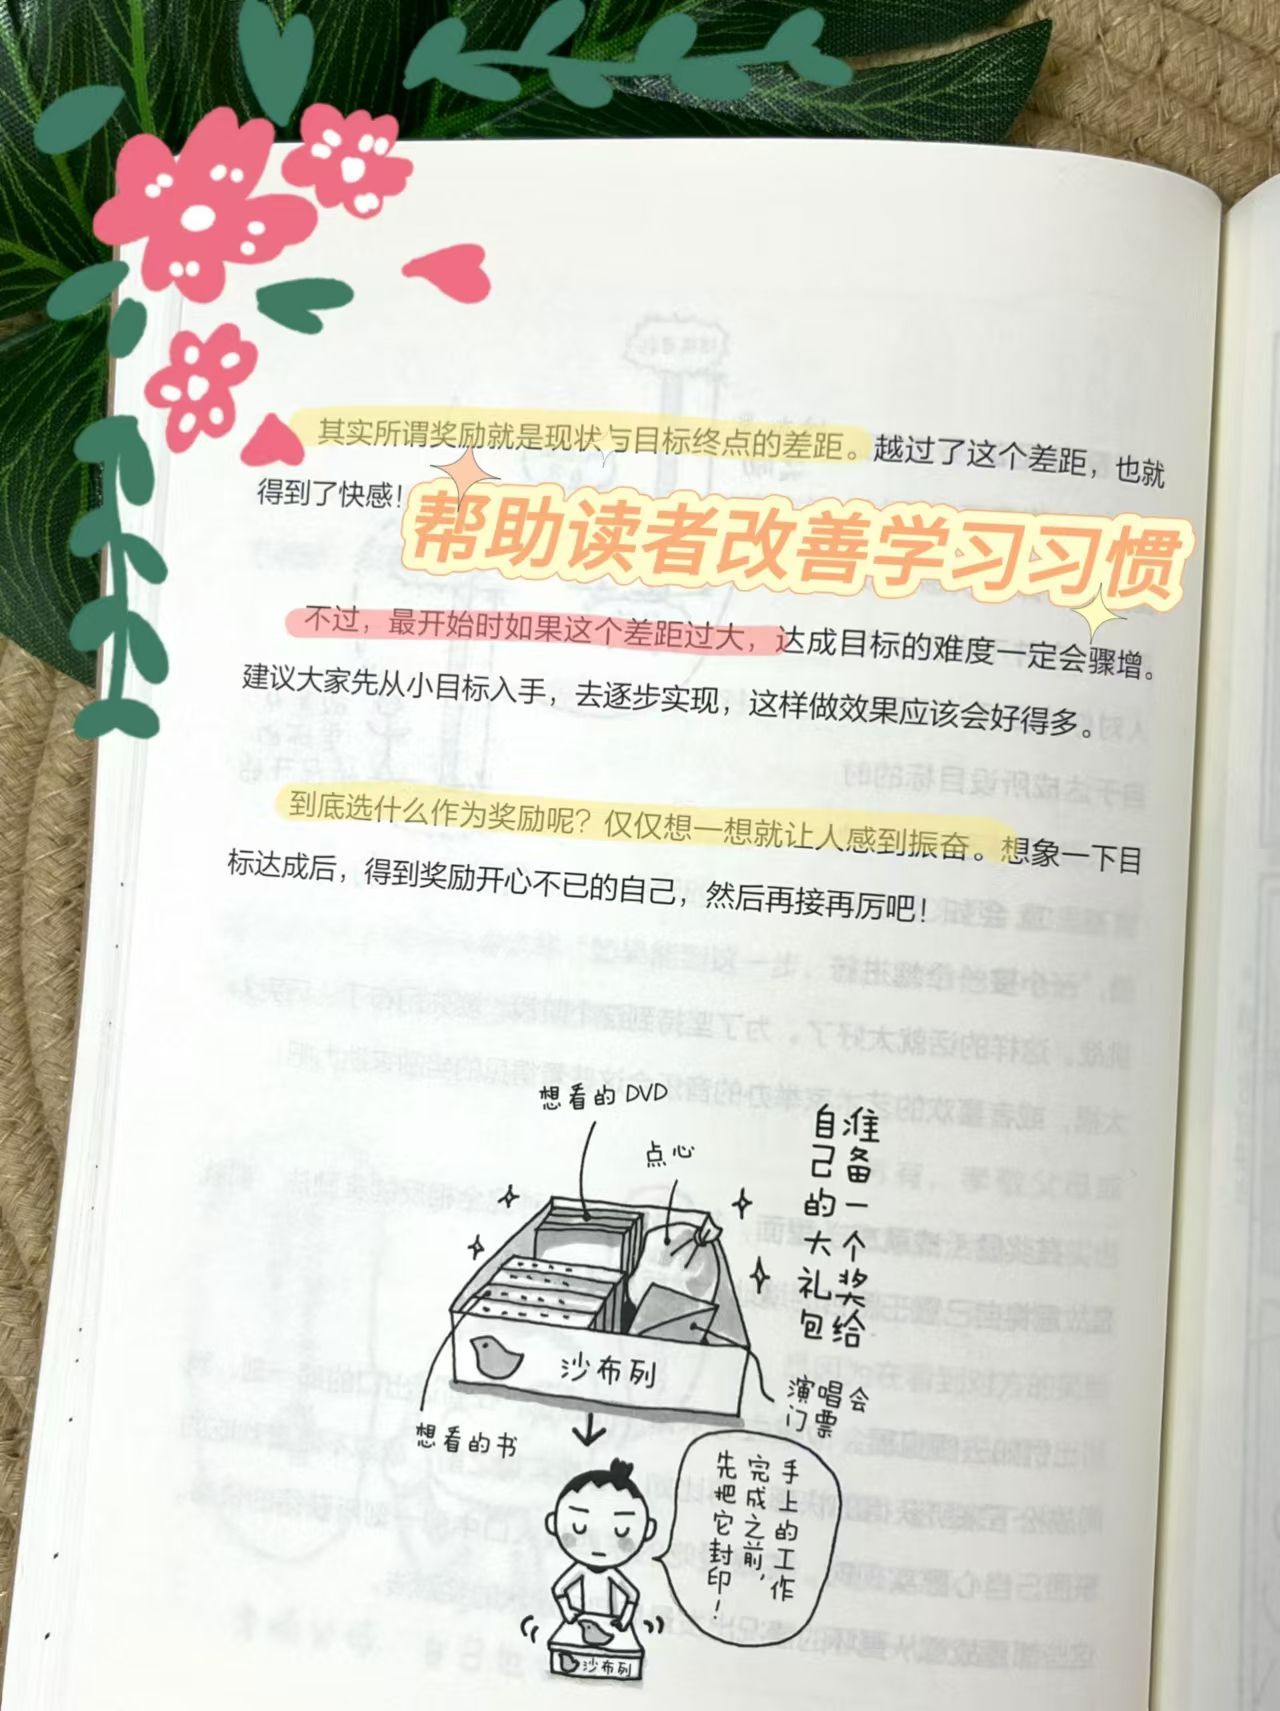 其实所谓奖励就是现状与目标终点的差距。越过了这个差距，也就
得到了快感！
帮助读者改善学习习惯
不过，最开始时如果这个差距过大，达成目标的难度一定会骤增。
建议大家先从小目标入手，去逐步实现，这样做效果应该会好得多。
到底选什么作为奖励呢？仅仅想一想就让人感到振奋。想象一下目
标达成后，得到奖励开心不已的自己，然后再接再厉吧！
想看的DVD
点心
准备一个奖给
自己的大礼包
沙布列
演唱会
门票
想看的书
手上的工作
完成之前，
先把它封印！
沙布列